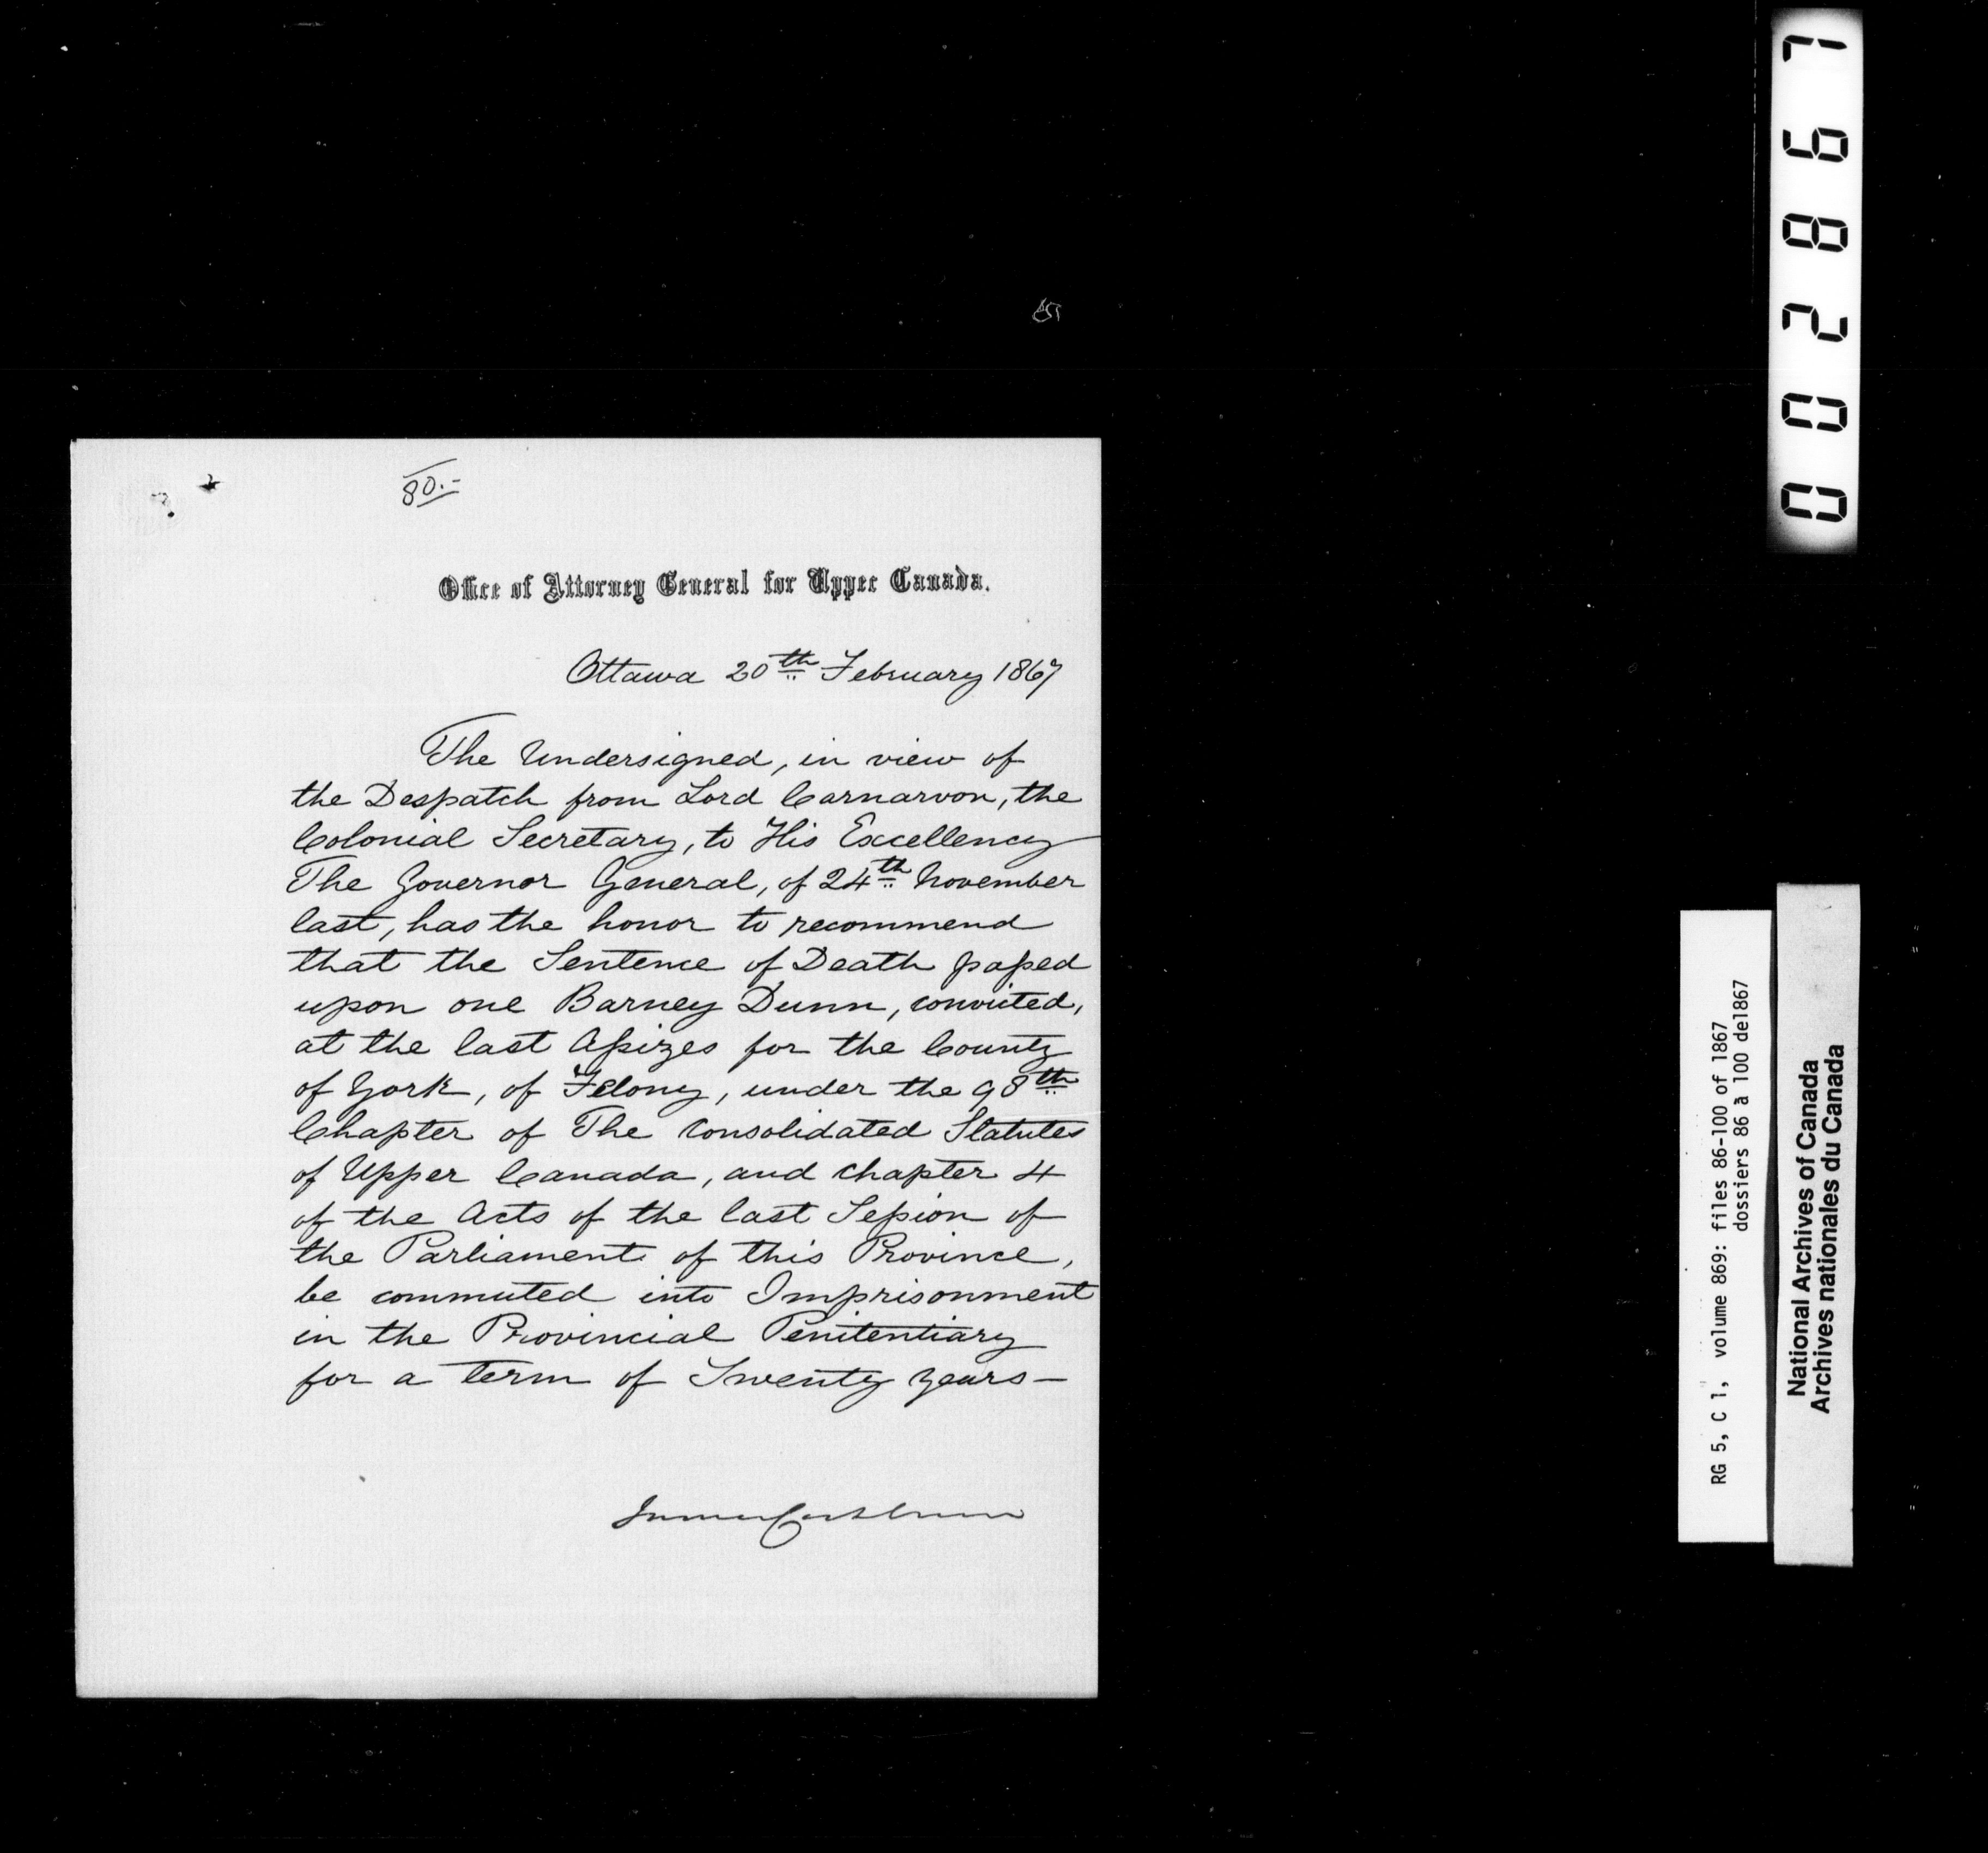 80.-
Office of Attorney General for Upper Canada.
Ottawa 20th February 1867
The Undersigned, in view of
the Despatch from Lord Carnarvon, the
Colonial Secretary, to His Excellency
The Governor General, of 24th November
last, has the honor to recommend
that the Sentence of Death passed
upon one Barney Dunn, convicted,
at the last Assizes for the County
of York, of Felony, under the 98th
Chapter of The Consolidated Statutes
of Upper Canada, and chapter 4
of the Acts of the last Session of
the Parliament of this Province,
be commuted into Imprisonment
in the Provincial Penitentiary
for a term of Twenty Years—
James Cockburn
002867
RG 5, C 1, volume 869: files 86-100 of 1867
dossiers 86 à 100 de1867
National Archives of Canada
Archives nationales du Canada